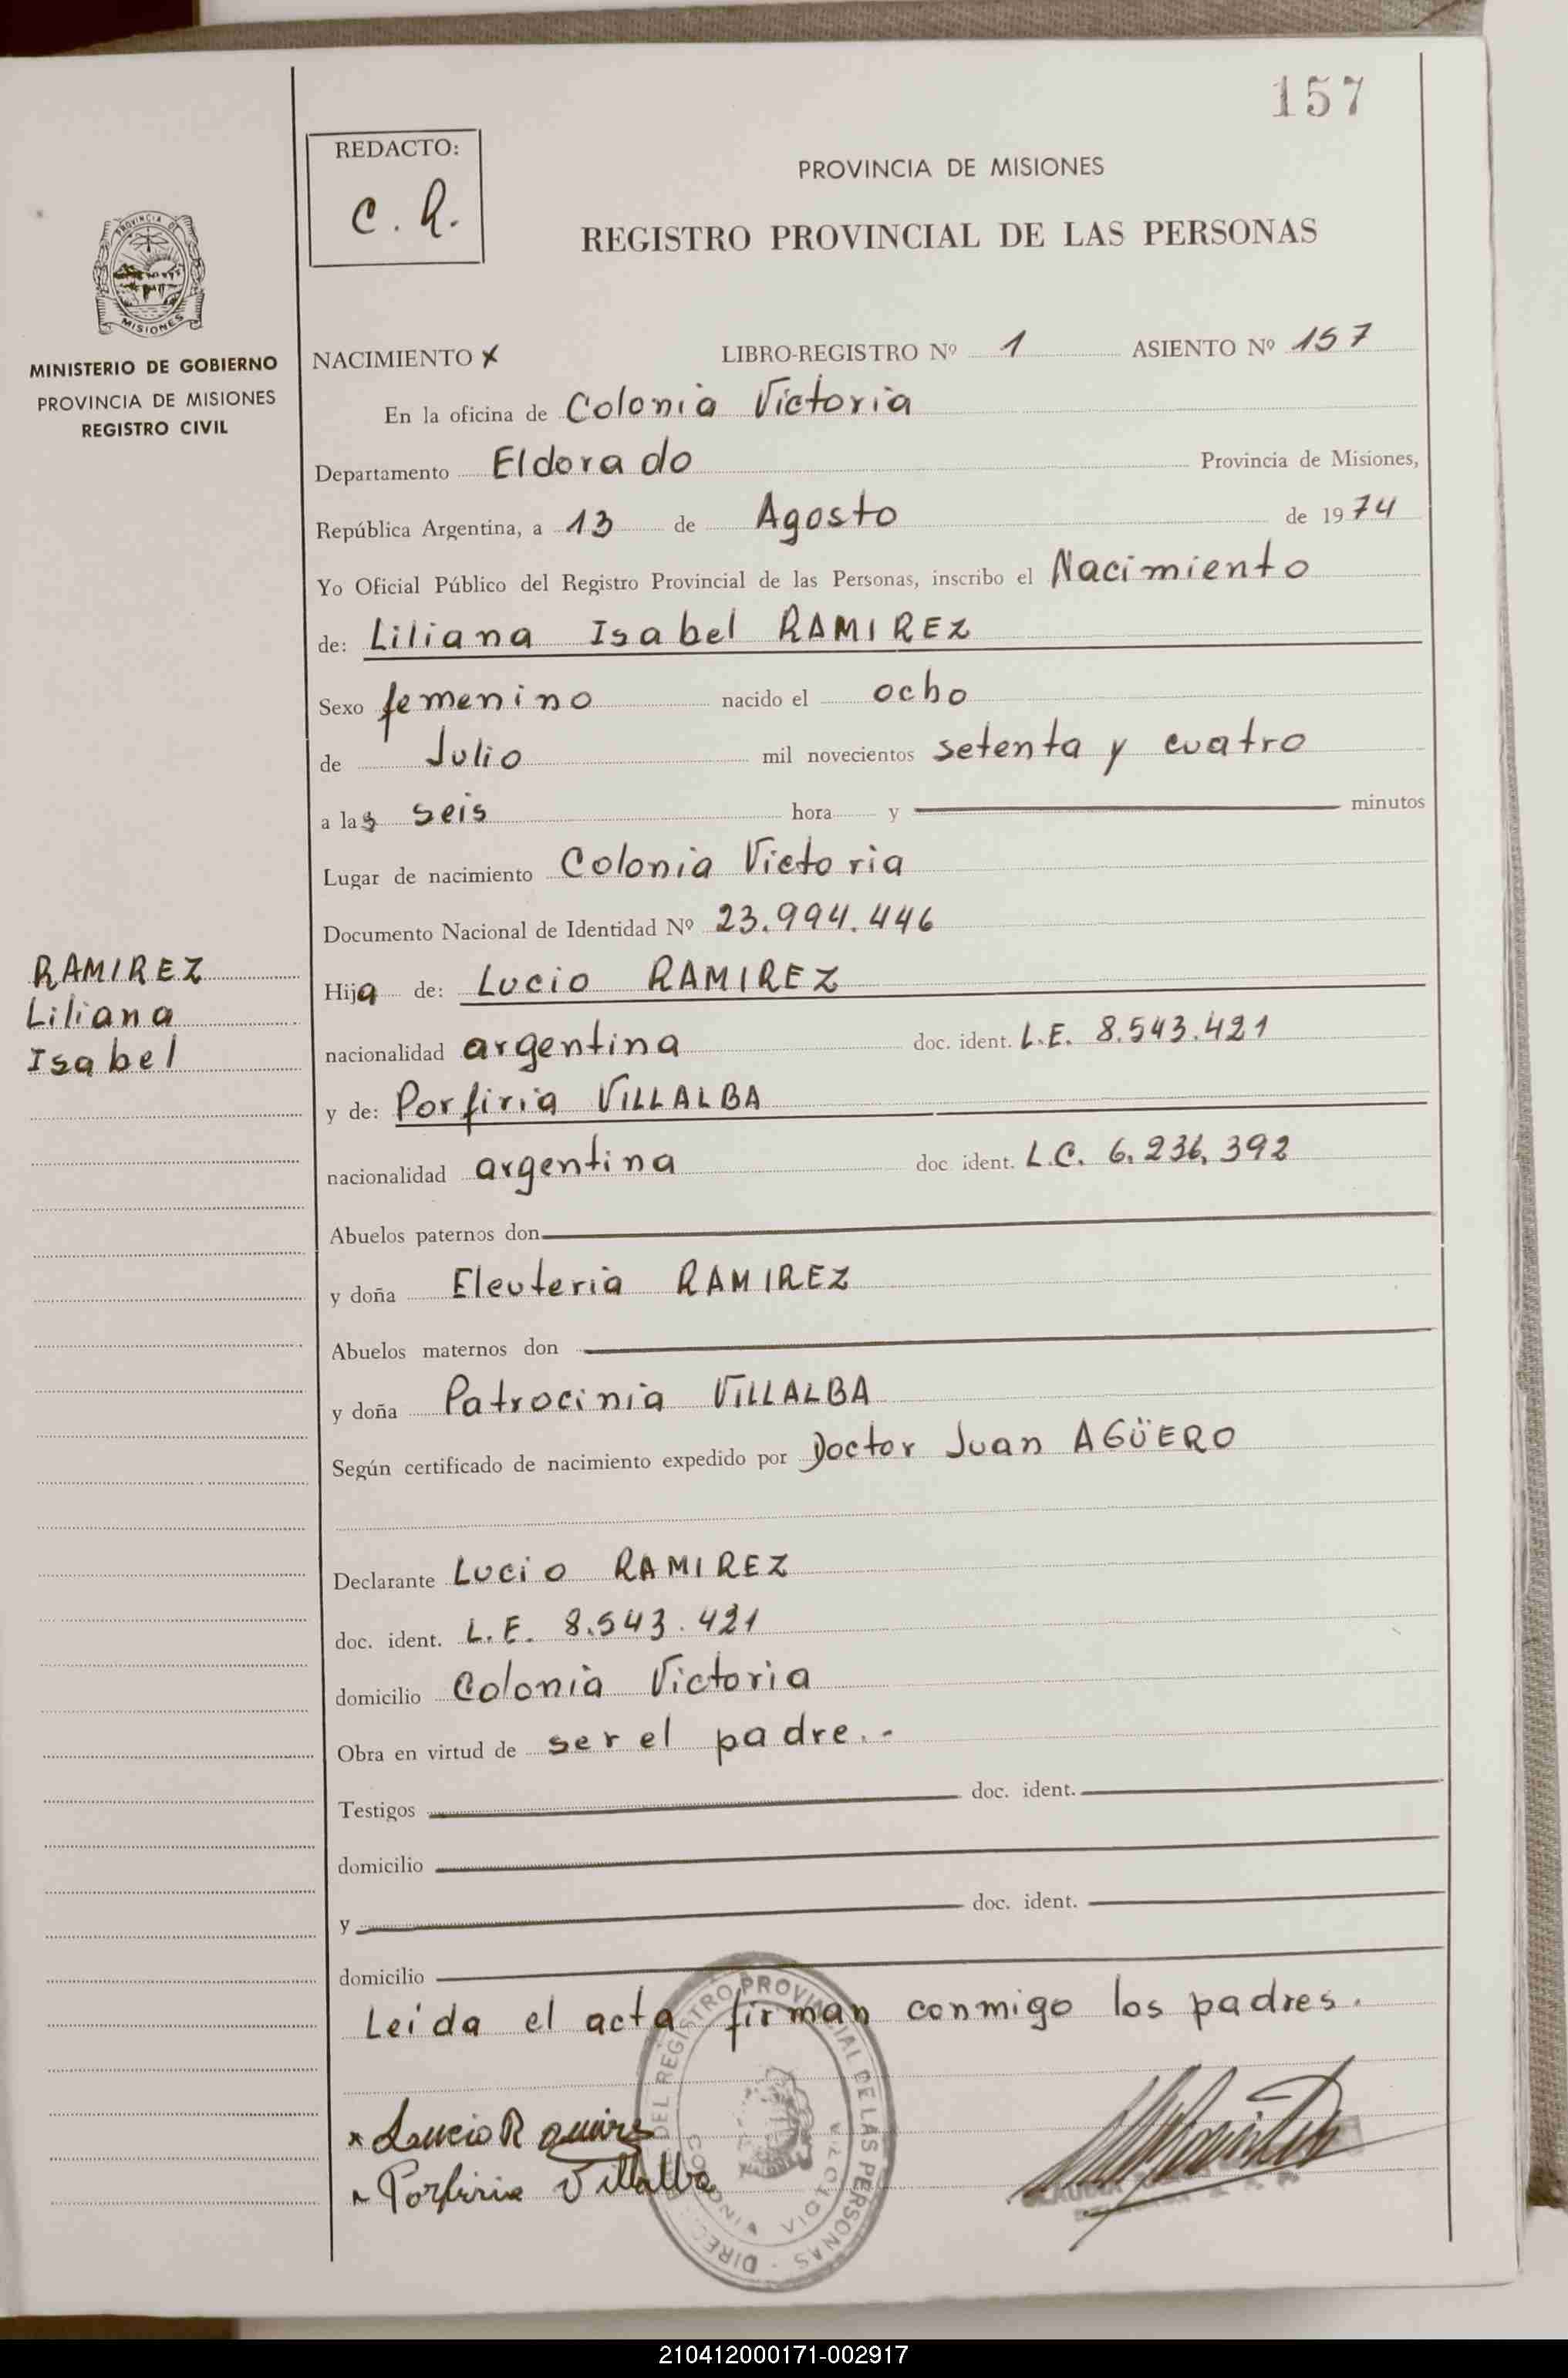 157
REDACTO:
C. R.
PROVINCIA DE MISIONES
REGISTRO PROVINCIAL DE LAS PERSONAS
PROVINCIA DE
MISIONES
MINISTERIO DE GOBIERNO
PROVINCIA DE MISIONES
REGISTRO CIVIL
NACIMIENTO x LIBRO-REGISTRO Nº 1 ASIENTO Nº 157
En la oficina de Colonia Victoria
Departamento Eldorado Provincia de Misiones,
República Argentina, a 13 de Agosto de 1974
Yo Oficial Público del Registro Provincial de las Personas, inscribo el Nacimiento
de: Liliana Isabel RAMIREZ
Sexo femenino nacido el ocho
de Julio mil novecientos setenta y cuatro
a las seis hora y minutos
Lugar de nacimiento Colonia Victoria
Documento Nacional de Identidad Nº 23.994.446
RAMIREZ
Liliana
Isabel
Hija de: Lucio RAMIREZ
nacionalidad argentina doc. ident. L.E. 8.543.421
y de: Porfiria VILLALBA
nacionalidad argentina doc ident. L.C. 6.236.392
Abuelos paternos don
y doña Eleuteria RAMIREZ
Abuelos maternos don
y doña Patrocinia VILLALBA
Según certificado de nacimiento expedido por Doctor Juan AGÜERO
Declarante Lucio RAMIREZ
doc. ident. L.E. 8.543.421
domicilio Colonia Victoria
Obra en virtud de ser el padre.-
Testigos doc. ident.
domicilio
y doc. ident.
domicilio
Leída el acta firman conmigo los padres.
DEL REGISTRO PROVINCIAL DE LAS PERSONAS
COLONIA VICTORIA
x Lucio Ramirez
x Porfiria Villalba
210412000171-002917